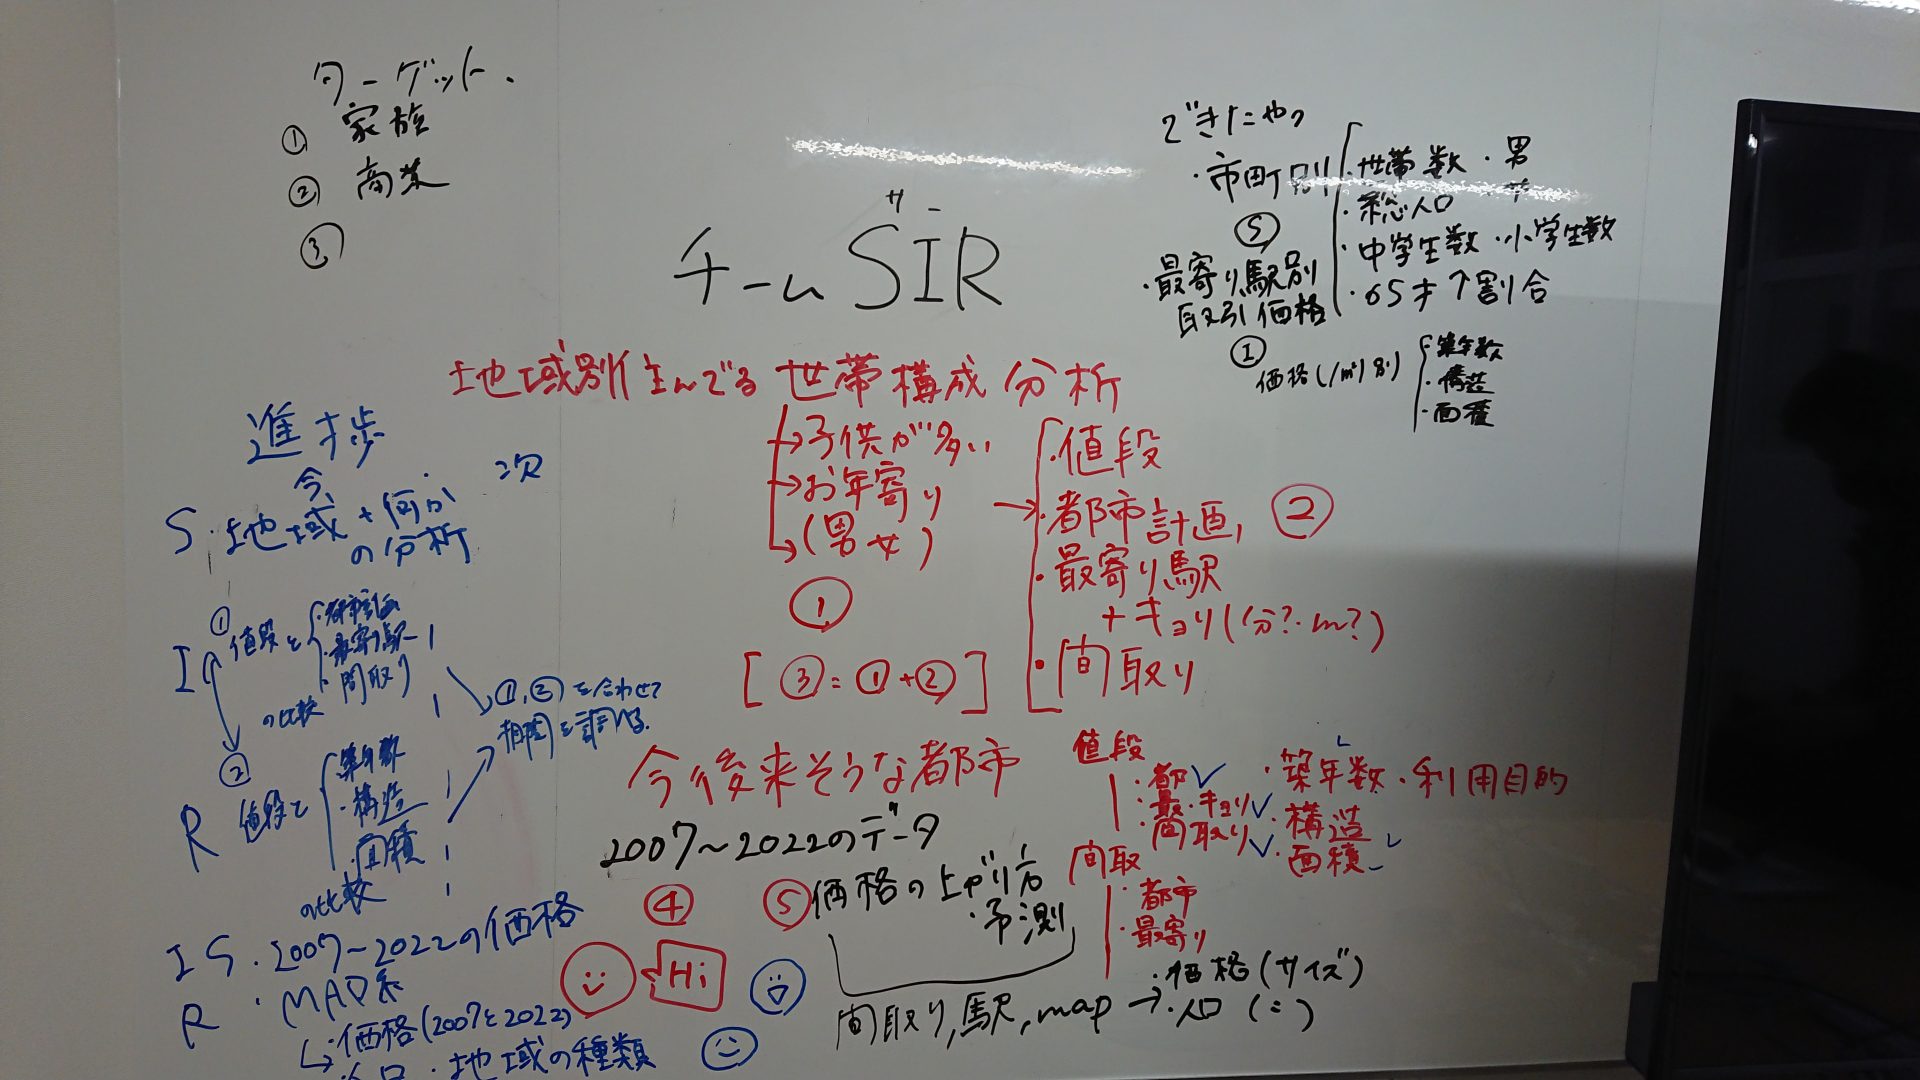 ターゲット.
① 家族
② 商業
③
サー
チーム SIR
できたやつ
・市町別
・世帯数・男女
・総人口
・中学生数・小学生数
・65才↑割合
Ⓢ
・最寄り駅別
取引価格
Ⓘ
価格(/㎡)別
・築年数
・構造
・面積
地域別 住んでる 世帯構成 分析
→子供が多い
→お年寄り
→(男女)
①
・値段
→・都市計画, ②
・最寄り駅
+キョリ(分?・m?)
・間取り
[③=①+②]
進捗
今 次
S・地域+何か
の分析
I ① 値段と
・都市計画
・最寄り駅
・間取り
の比較
①,②を合わせて
相関を調べる.
②
R 値段と
・築年数
・構造
・面積
の比較
IS・2007~2022の価格
R・MAP系
↳・価格(2007と2022)
・人口・地域の種類
今後来そうな都市
2007~2022のデータ
④ ⑤ 価格の上がり方
・予測
Hi
間取り,駅,map→
・価格(サイズ)
・人口(〃)
値段
・都✓
・最・キョリ✓
・間取り✓
・築年数・利用目的
・構造
・面積
間取
・都市
・最寄り